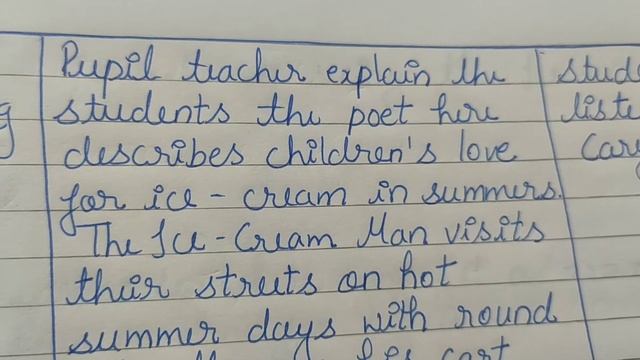 Pupil teacher explain the
students the poet here
describes children's love
for ice - cream in summers.
The Ice - Cream Man visits
their streets on hot
summer days with round
cart